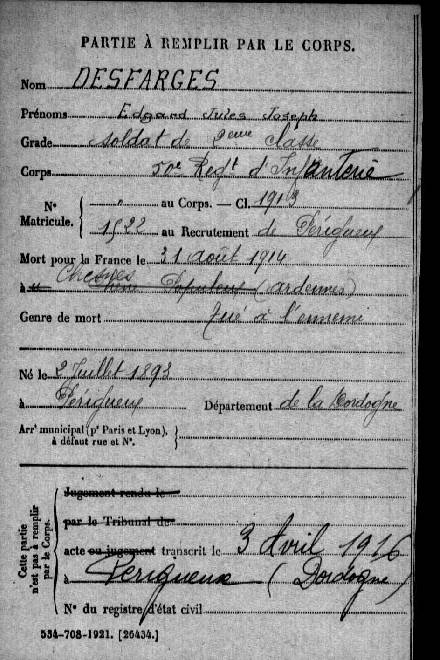 PARTIE À REMPLIR PAR LE CORPS.
Nom DESFARGES
Prénoms Edgard Jules Joseph
Grade soldat de 2eme Classe
Corps 50e Regt d'Infanterie
N° Matricule. { " au Corps. — Cl. 1913
1522 au Recrutement de Périgueux
Mort pour la France le 31 août 1914
à Chesnes (ardennes)
Genre de mort Tué à l'ennemi
Né le 2 Juillet 1893
à Périgueux Département de la Dordogne
Arr' municipal (p' Paris et Lyon),
à défaut rue et N°.
Cette partie n'est pas à remplir par le Corps.
Jugement rendu le
par le Tribunal de
acte ou jugement transcrit le 3 Avril 1916
à Perigueux (Dordogne)
N° du registre d'état civil
534-708-1921. [26434.]